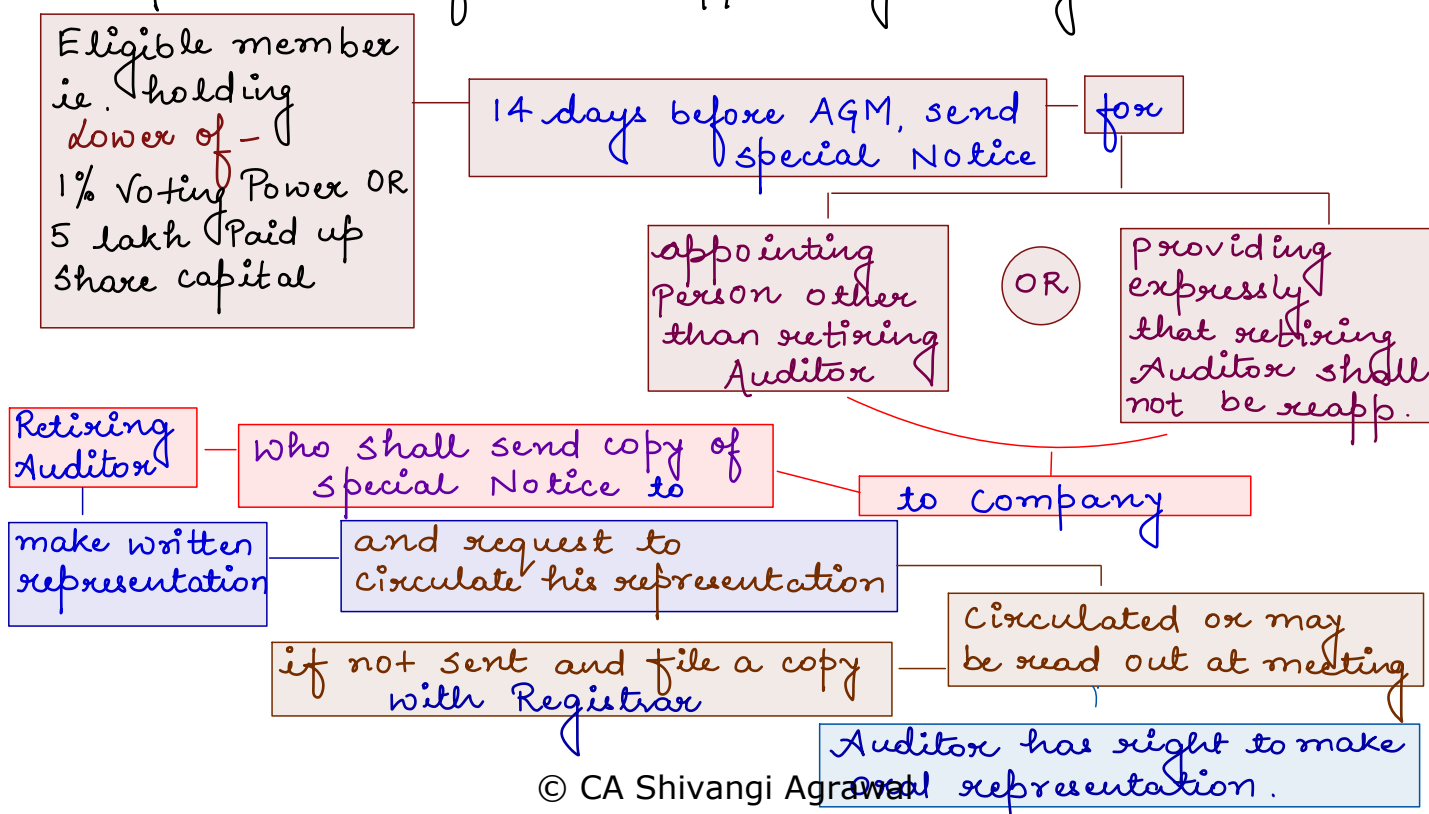 Eligible member
ie. holding
Lower of -
1% Voting Power OR
5 lakh Paid up
share capital
14 days before AGM, send
special Notice
for
appointing
Person other
than retiring
Auditor
OR
providing
expressly
that retiring
Auditor shall
not be reapp.
Retiring
Auditor
who shall send copy of
special Notice to
to Company
make written
representation
and request to
circulate his representation
Circulated or may
be read out at meeting
if not sent and file a copy
with Registrar
Auditor has right to make
oral representation.
© CA Shivangi Agrawal